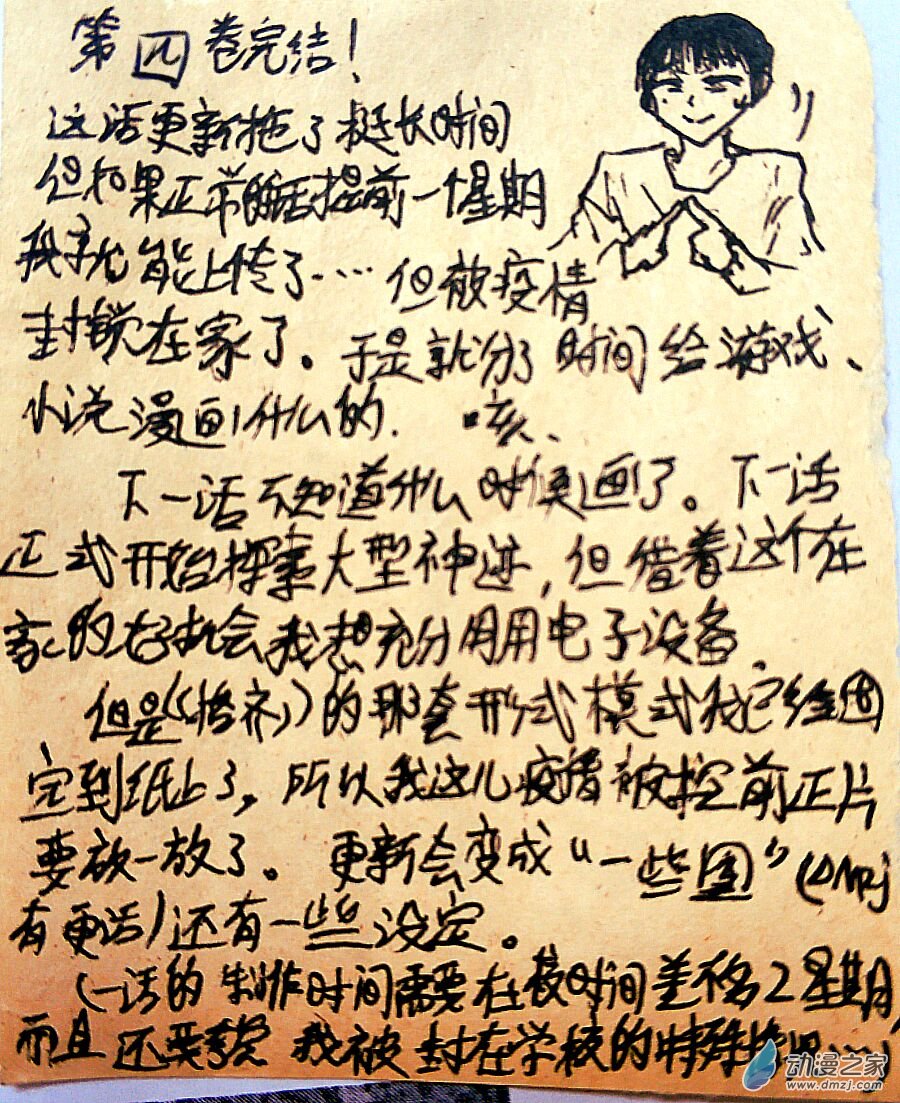 第四卷完结!
这话更新拖了挺长时间
但如果正常的话提前一个星期
我就能上传了……但被疫情
封锁在家了。于是就分了时间给游戏、
小说漫画什么的. 咳、
下一话不知道什么时候画了。下一话
正式开始探索大型神迹,但借着这个在
家的好机会我想充分用用电子设备.
但是《悟齐》的那套形式模式我已经固
定到纸上了,所以我这儿疫情被控前正片
要放一放了。更新会变成“一些图”(DMZJ
有更话)还有一些设定。
(一话的制作时间需要在校时间差不多2星期,
而且还要考虑我被封在学校的特殊情况……)
动漫之家
www.dmzj.com